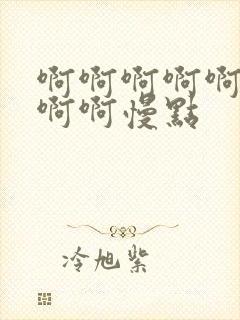 啊啊啊啊啊
啊啊慢點
冷旭紫